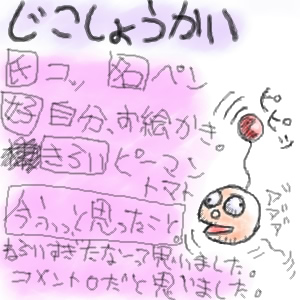 じこしょうかい
氏 コッ 名 ペン
好 自分、お絵かき。
きらい ピーマン
トマト
今うっっと思ったこと。
ねらいすぎたなーって思いました。
コメント0だと思いました。
ピピン